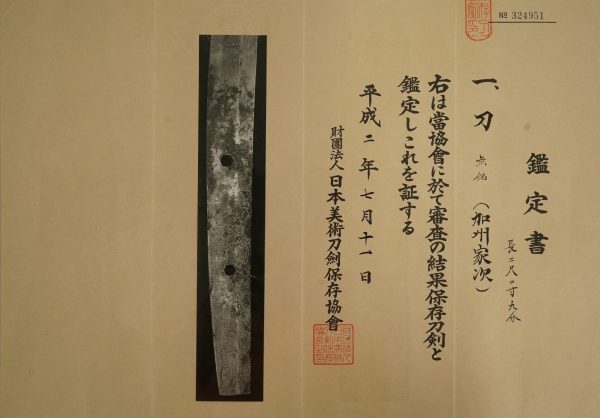 № 324951
鑑定書
一、刀 無銘（加州家次）
長二尺二寸九分
右は當協會に於て審査の結果保存刀剣と
鑑定しこれを証する
平成二年七月十一日
財團法人 日本美術刀劍保存協會